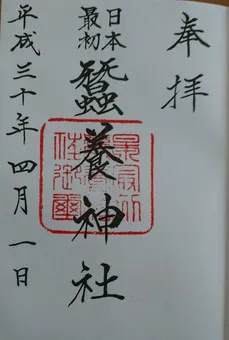 奉拝
日本最初
蠶養神社
平成三十年四月一日